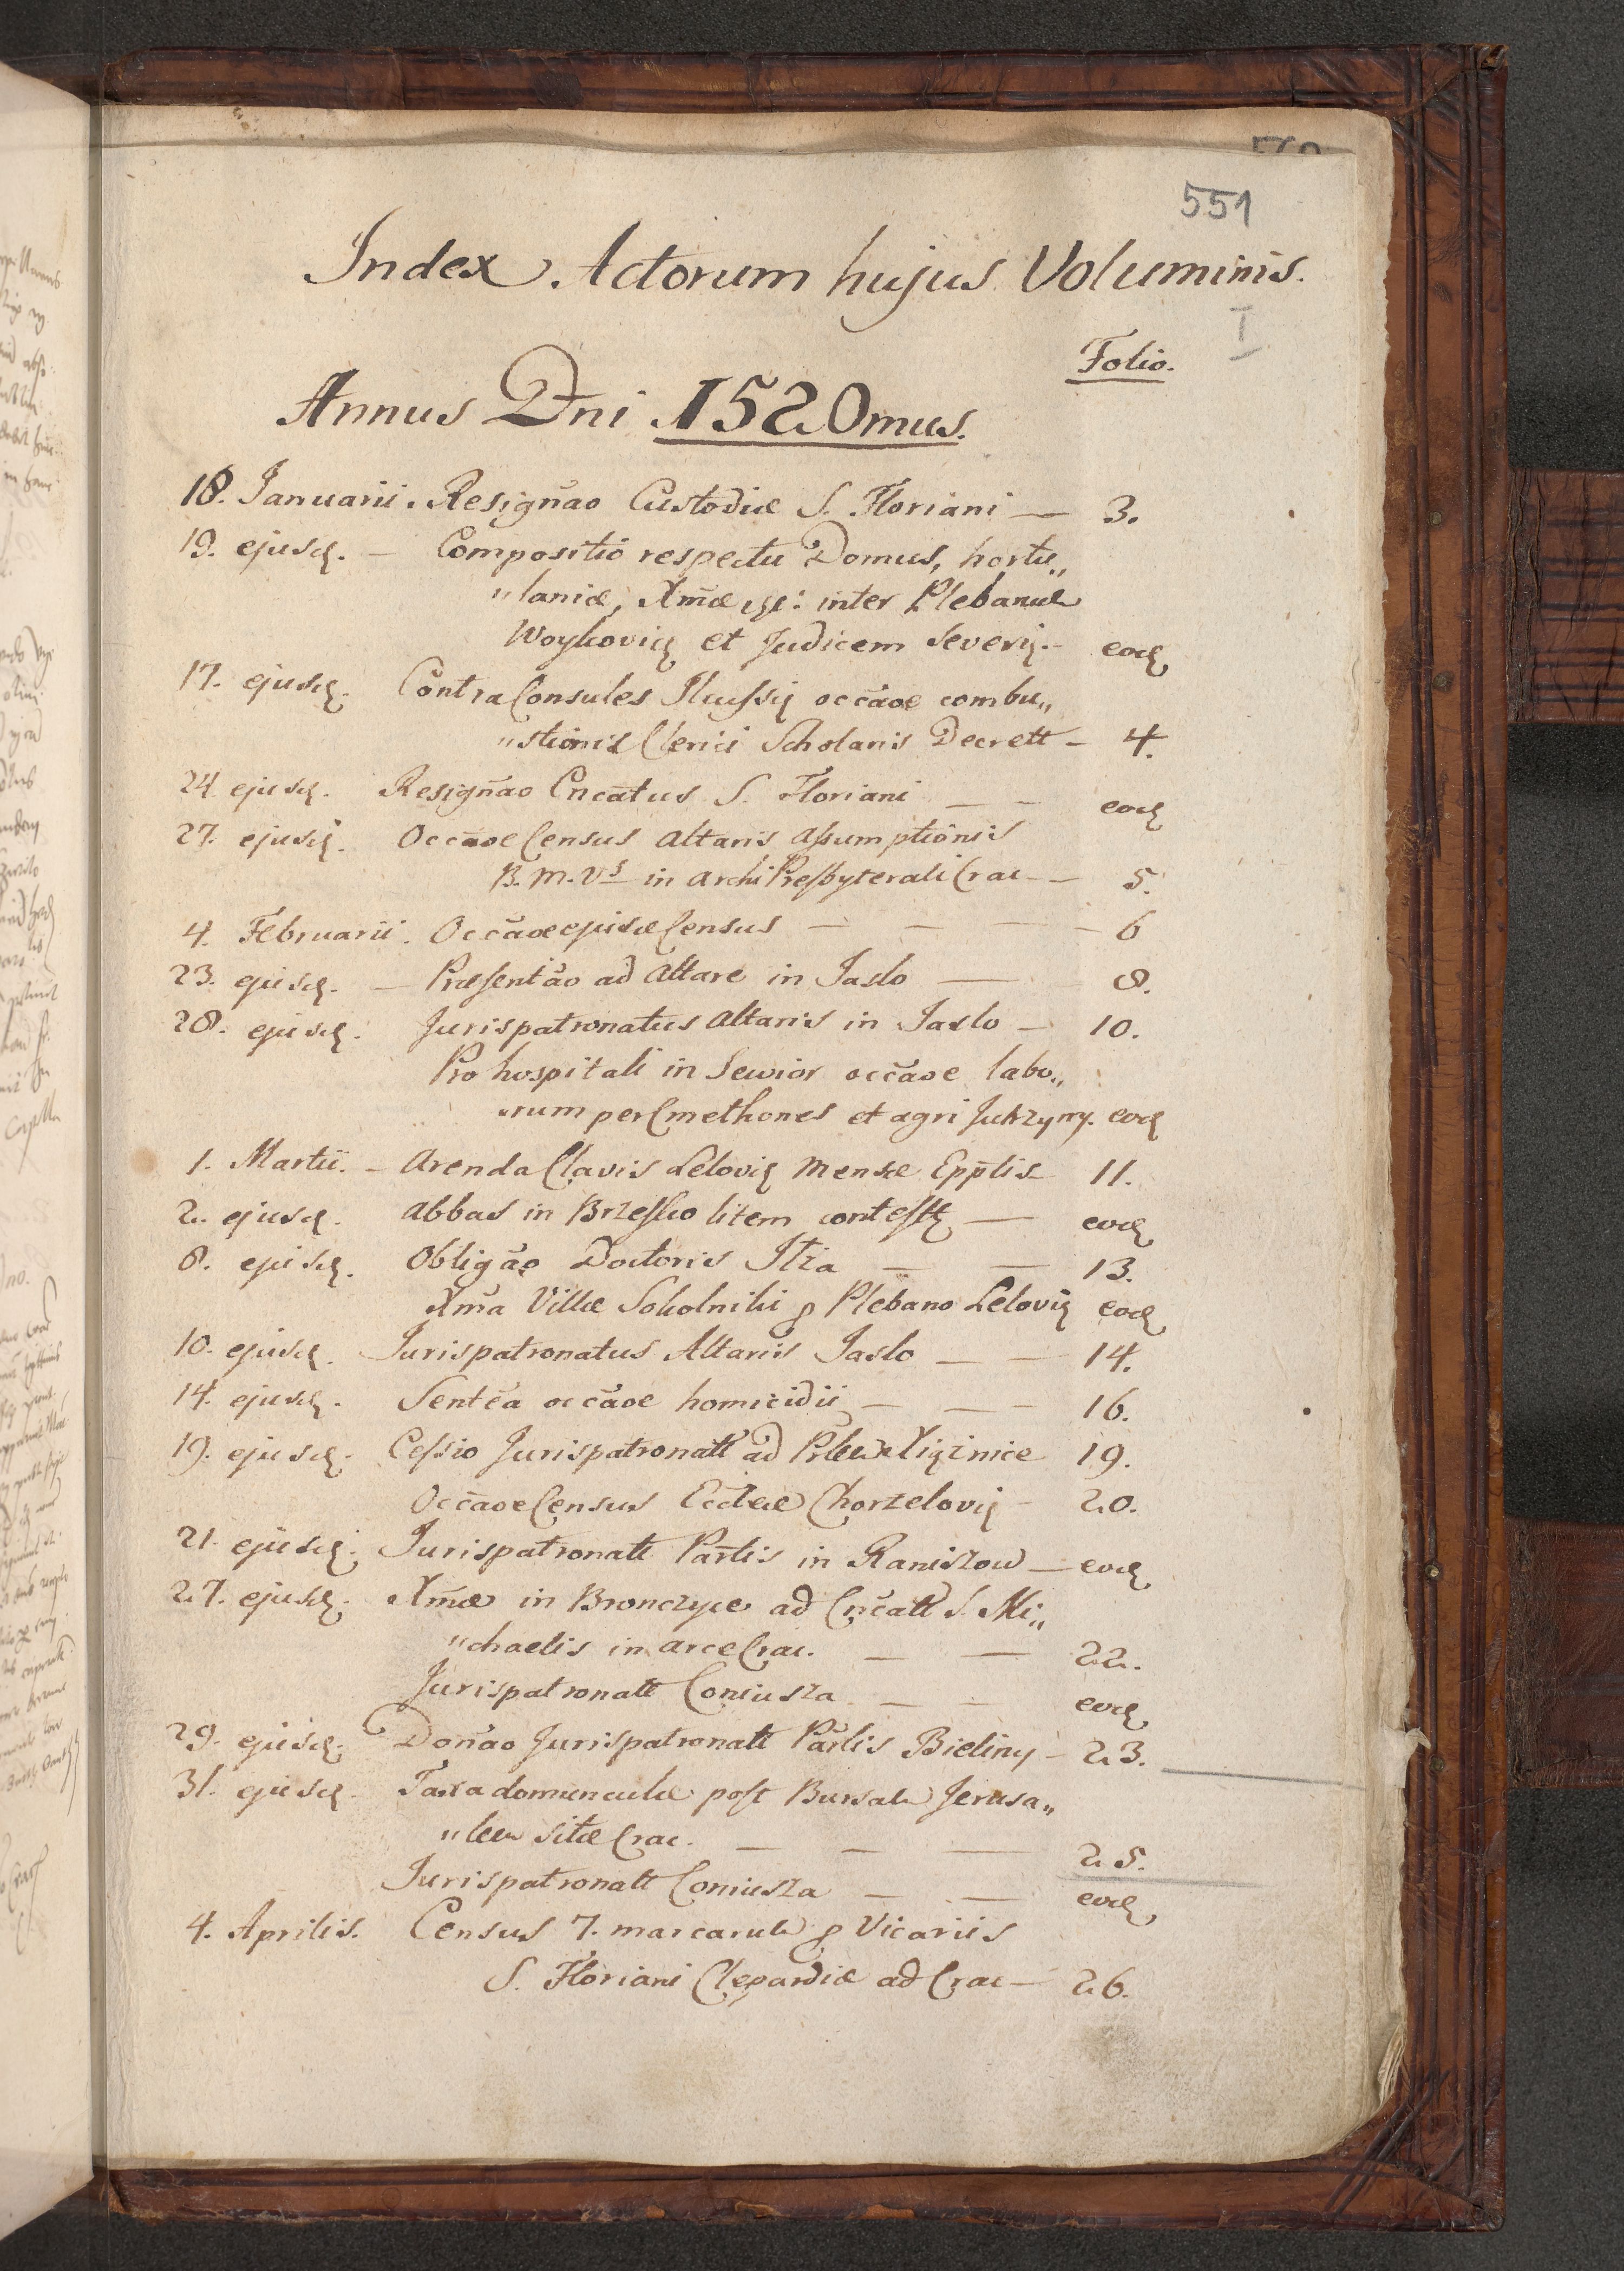 551
Index Actorum hujus Voluminis.
I
Folio.
Annus Dni 1520mus.
18. Januarii. Resignao Custodiæ S. Floriani — 3.
19. ejusd. — Compositio respectu Domus, hortu„
„laniæ, Xmæ inter Plebanum
Woykovic et Judicem Severi. — eod
17. ejusd. Contra Consules Ilcussi occãoe combu„
„stionis Clerici Scholaris Decrett — 4.
24 ejusd. Resignao Cncatus S. Floriani — — eod
27. ejusd. Occãoe Census Altaris Assumptionis
B. M. Vs in ArchiPresbyterali Crac — 5.
4. Februarii. Occãoe ejusd Census — — — 6
23. ejusd. — Præsentão ad Altare in Jaslo — 8.
28. ejusd. Jurispatronatus Altaris in Jaslo — 10.
Pro hospitali in Sewior occãoe labo„
„rum per Cmethones et agri Jutrzyny. eod
1. Martii. — Arenda Clavis Lelovi Mensæ Epplis — 11.
2. ejusd. Abbas in Brzesko litem contest — eod
8. ejusd. Obligão Doctoris Itza — — 13.
Xma Villæ Sokolniki p Plebano Lelovi eod
10. ejusd. Jurispatronatus Altaris Jaslo — — 14.
14. ejusd. Sentẽa occãoe homicidii — — — 16.
19. ejusd. Cessio Jurispatronatt ad 19.
Occãoe Census Eccleæ Chorzelovi — 20.
21. ejusd. Jurispatronatt Partis in Raniszow — eod
27. ejusd. Xmæ in Bronczyce ad Cncatt S. Mi„
„chaelis in arce Crac. — — 22.
Jurispatronatt Coniusza — — eod
29. ejusd. Donão Jurispatronatt Partis Bieliny — 23.
31. ejusd. Taxa domunculæ post Bursam Jerusa„
„lem sitæ Crac. — — — 25.
Jurispatronatt Coniusza — — eod
4. Aprilis. Census 7. marcarum p Vicariis
S. Floriani Clepardiæ ad Crac — 26.